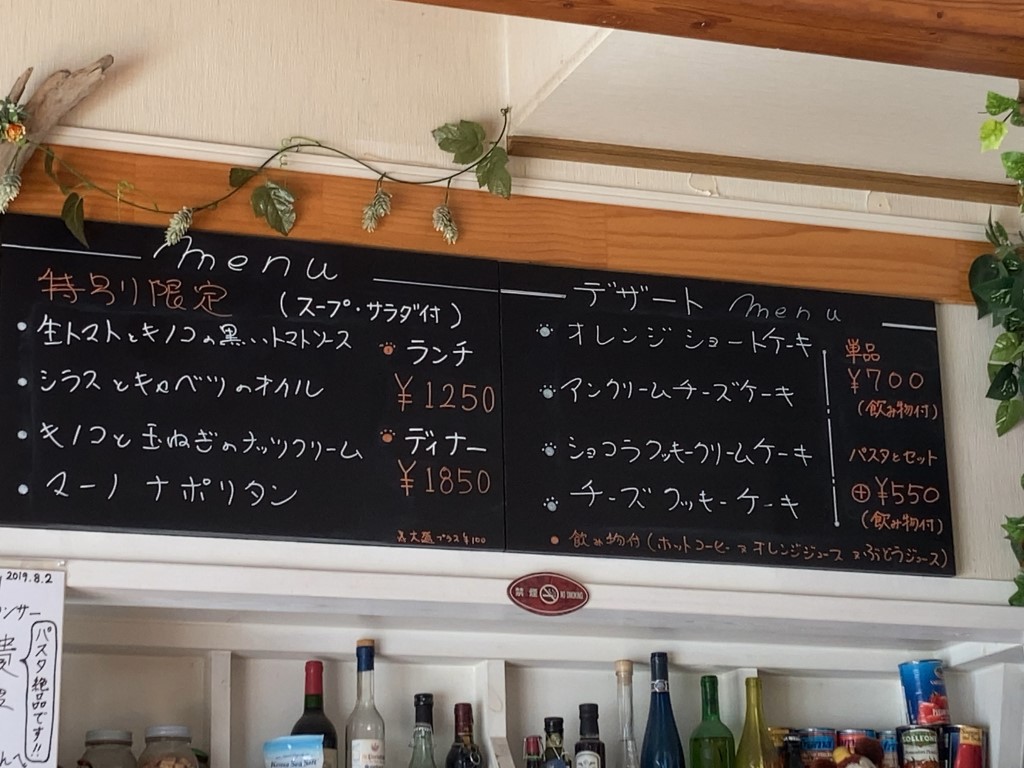 menu
特別り限定
(スープ・サラダ付)
・生トマトとキノコの黒いトマトソース
・シラスとキャベツのオイル
・キノコと玉ねぎのナッツクリーム
・マーノ ナポリタン
ランチ
¥1250
ディナー
¥1850
大盛プラス¥100
デザート menu
オレンジショートケーキ
アンクリームチーズケーキ
ショコラクッキークリームケーキ
チーズクッキーケーキ
単品
¥700
(飲み物付)
パスタとセット
⊕¥550
(飲み物付)
・飲み物付(ホットコーヒー or オレンジジュース or ぶどうジュース)
禁煙 NO SMOKING
2019.8.2
ンサー
パスタ絶品です!!
SOLLEONE